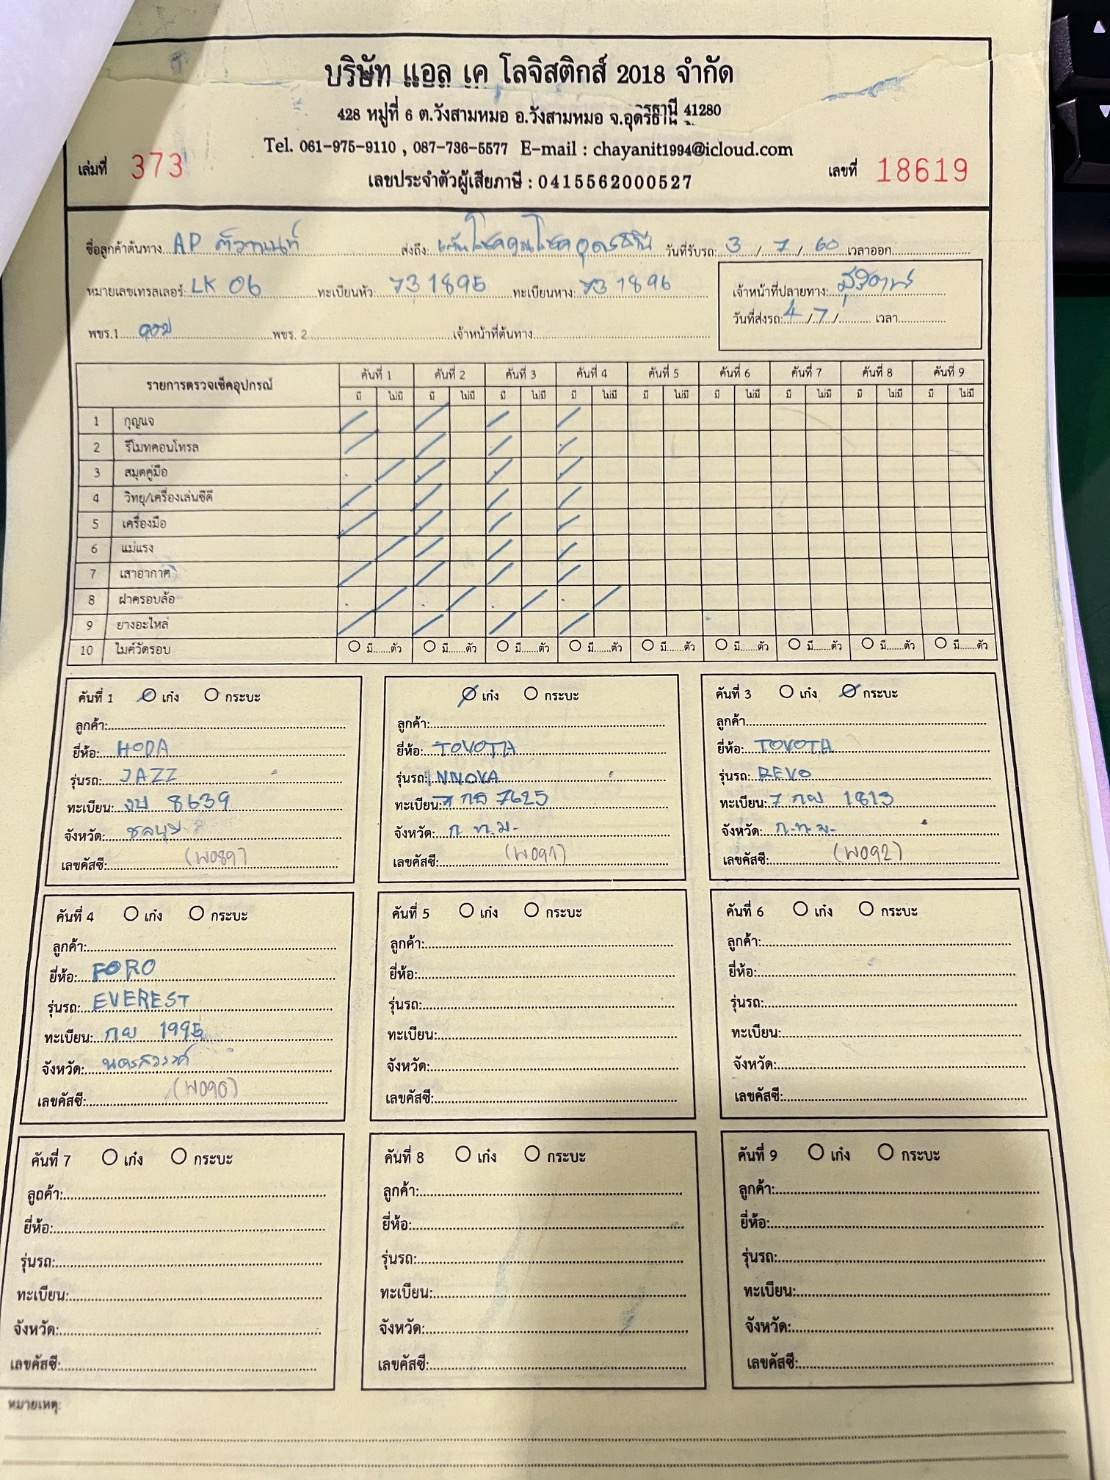 บริษัท แอล เค โลจิสติกส์ 2018 จำกัด
428 หมู่ที่ 6 ต.วังสามหมอ อ.วังสามหมอ จ.อุดรธานี 41280
Tel. 061-975-9110 , 087-736-5577 E-mail : chayanit1994@icloud.com
เล่มที่ 373 เลขที่ 18619
เลขประจำตัวผู้เสียภาษี : 0415562000527
ชื่อลูกค้าต้นทาง AP ส่งถึง: วันที่รับรถ: 3 / 7 / 60 เวลาออก
หมายเลขเทรลเลอร์: LK 06 ทะเบียนหัว: 73 1895 ทะเบียนหาง: 73 1896 เจ้าหน้าที่ปลายทาง:
วันที่ส่งรถ: 4 / 7 / เวลา
พขร.1 พขร. 2 เจ้าหน้าที่ต้นทาง
รายการตรวจเช็คอุปกรณ์ คันที่ 1 คันที่ 2 คันที่ 3 คันที่ 4 คันที่ 5 คันที่ 6 คันที่ 7 คันที่ 8 คันที่ 9
มี ไม่มี มี ไม่มี มี ไม่มี มี ไม่มี มี ไม่มี มี ไม่มี มี ไม่มี มี ไม่มี มี ไม่มี
1 กุญแจ
2 รีโมทคอนโทรล
3 สมุดคู่มือ
4 วิทยุ/เครื่องเล่นซีดี
5 เครื่องมือ
6 แม่แรง
7 เสาอากาศ
8 ฝาครอบล้อ
9 ยางอะไหล่
10 ไมค์วัดรอบ มี......ตัว มี......ตัว มี......ตัว มี......ตัว มี......ตัว มี......ตัว มี......ตัว มี......ตัว มี......ตัว
คันที่ 1 เก๋ง กระบะ
ลูกค้า:
ยี่ห้อ: HODA
รุ่นรถ: JAZZ
ทะเบียน: งบ 8639
จังหวัด: ชลบุรี
เลขคัสซี: (W089)
เก๋ง กระบะ
ลูกค้า:
ยี่ห้อ: TOYOTA
รุ่นรถ: INNOVA
ทะเบียน: 7625
จังหวัด: ก.ท.ม.
เลขคัสซี: (W091)
คันที่ 3 เก๋ง กระบะ
ลูกค้า
ยี่ห้อ: TOYOTA
รุ่นรถ: REVO
ทะเบียน: 7 กผ 1813
จังหวัด: ก.ท.ม.
เลขคัสซี: (W092)
คันที่ 4 เก๋ง กระบะ
ลูกค้า:
ยี่ห้อ: FORO
รุ่นรถ: EVEREST
ทะเบียน: กผ 1995
จังหวัด: นครสวรรค์
เลขคัสซี: (W090)
คันที่ 5 เก๋ง กระบะ
ลูกค้า:
ยี่ห้อ:
รุ่นรถ:
ทะเบียน:
จังหวัด:
เลขคัสซี:
คันที่ 6 เก๋ง กระบะ
ลูกค้า:
ยี่ห้อ:
รุ่นรถ:
ทะเบียน:
จังหวัด:
เลขคัสซี:
คันที่ 7 เก๋ง กระบะ
ลูกค้า:
ยี่ห้อ:
รุ่นรถ:
ทะเบียน:
จังหวัด:
เลขคัสซี:
คันที่ 8 เก๋ง กระบะ
ลูกค้า:
ยี่ห้อ:
รุ่นรถ:
ทะเบียน:
จังหวัด:
เลขคัสซี:
คันที่ 9 เก๋ง กระบะ
ลูกค้า:
ยี่ห้อ:
รุ่นรถ:
ทะเบียน:
จังหวัด:
เลขคัสซี:
หมายเหตุ: